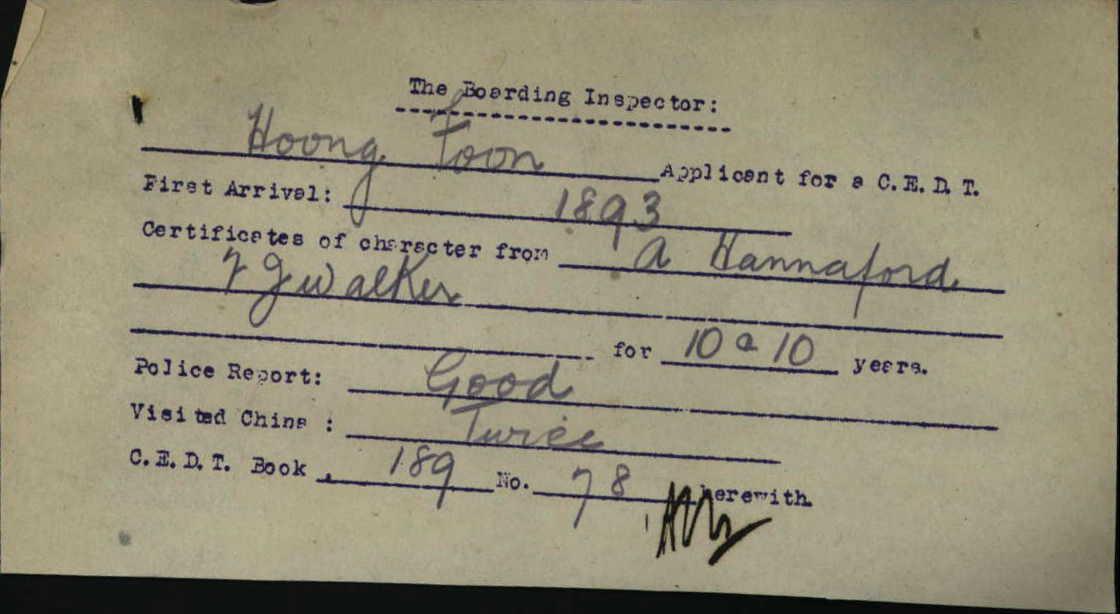 The Boarding Inspector:
Hoong Toon Applicant for a C.E.D.T.
First Arrival: 1893
Certificates of character from A Hannaford
F J Walker
for 10 & 10 years.
Police Report: Good
Visited China : Twice
C.E.D.T. Book 189 No. 78 herewith